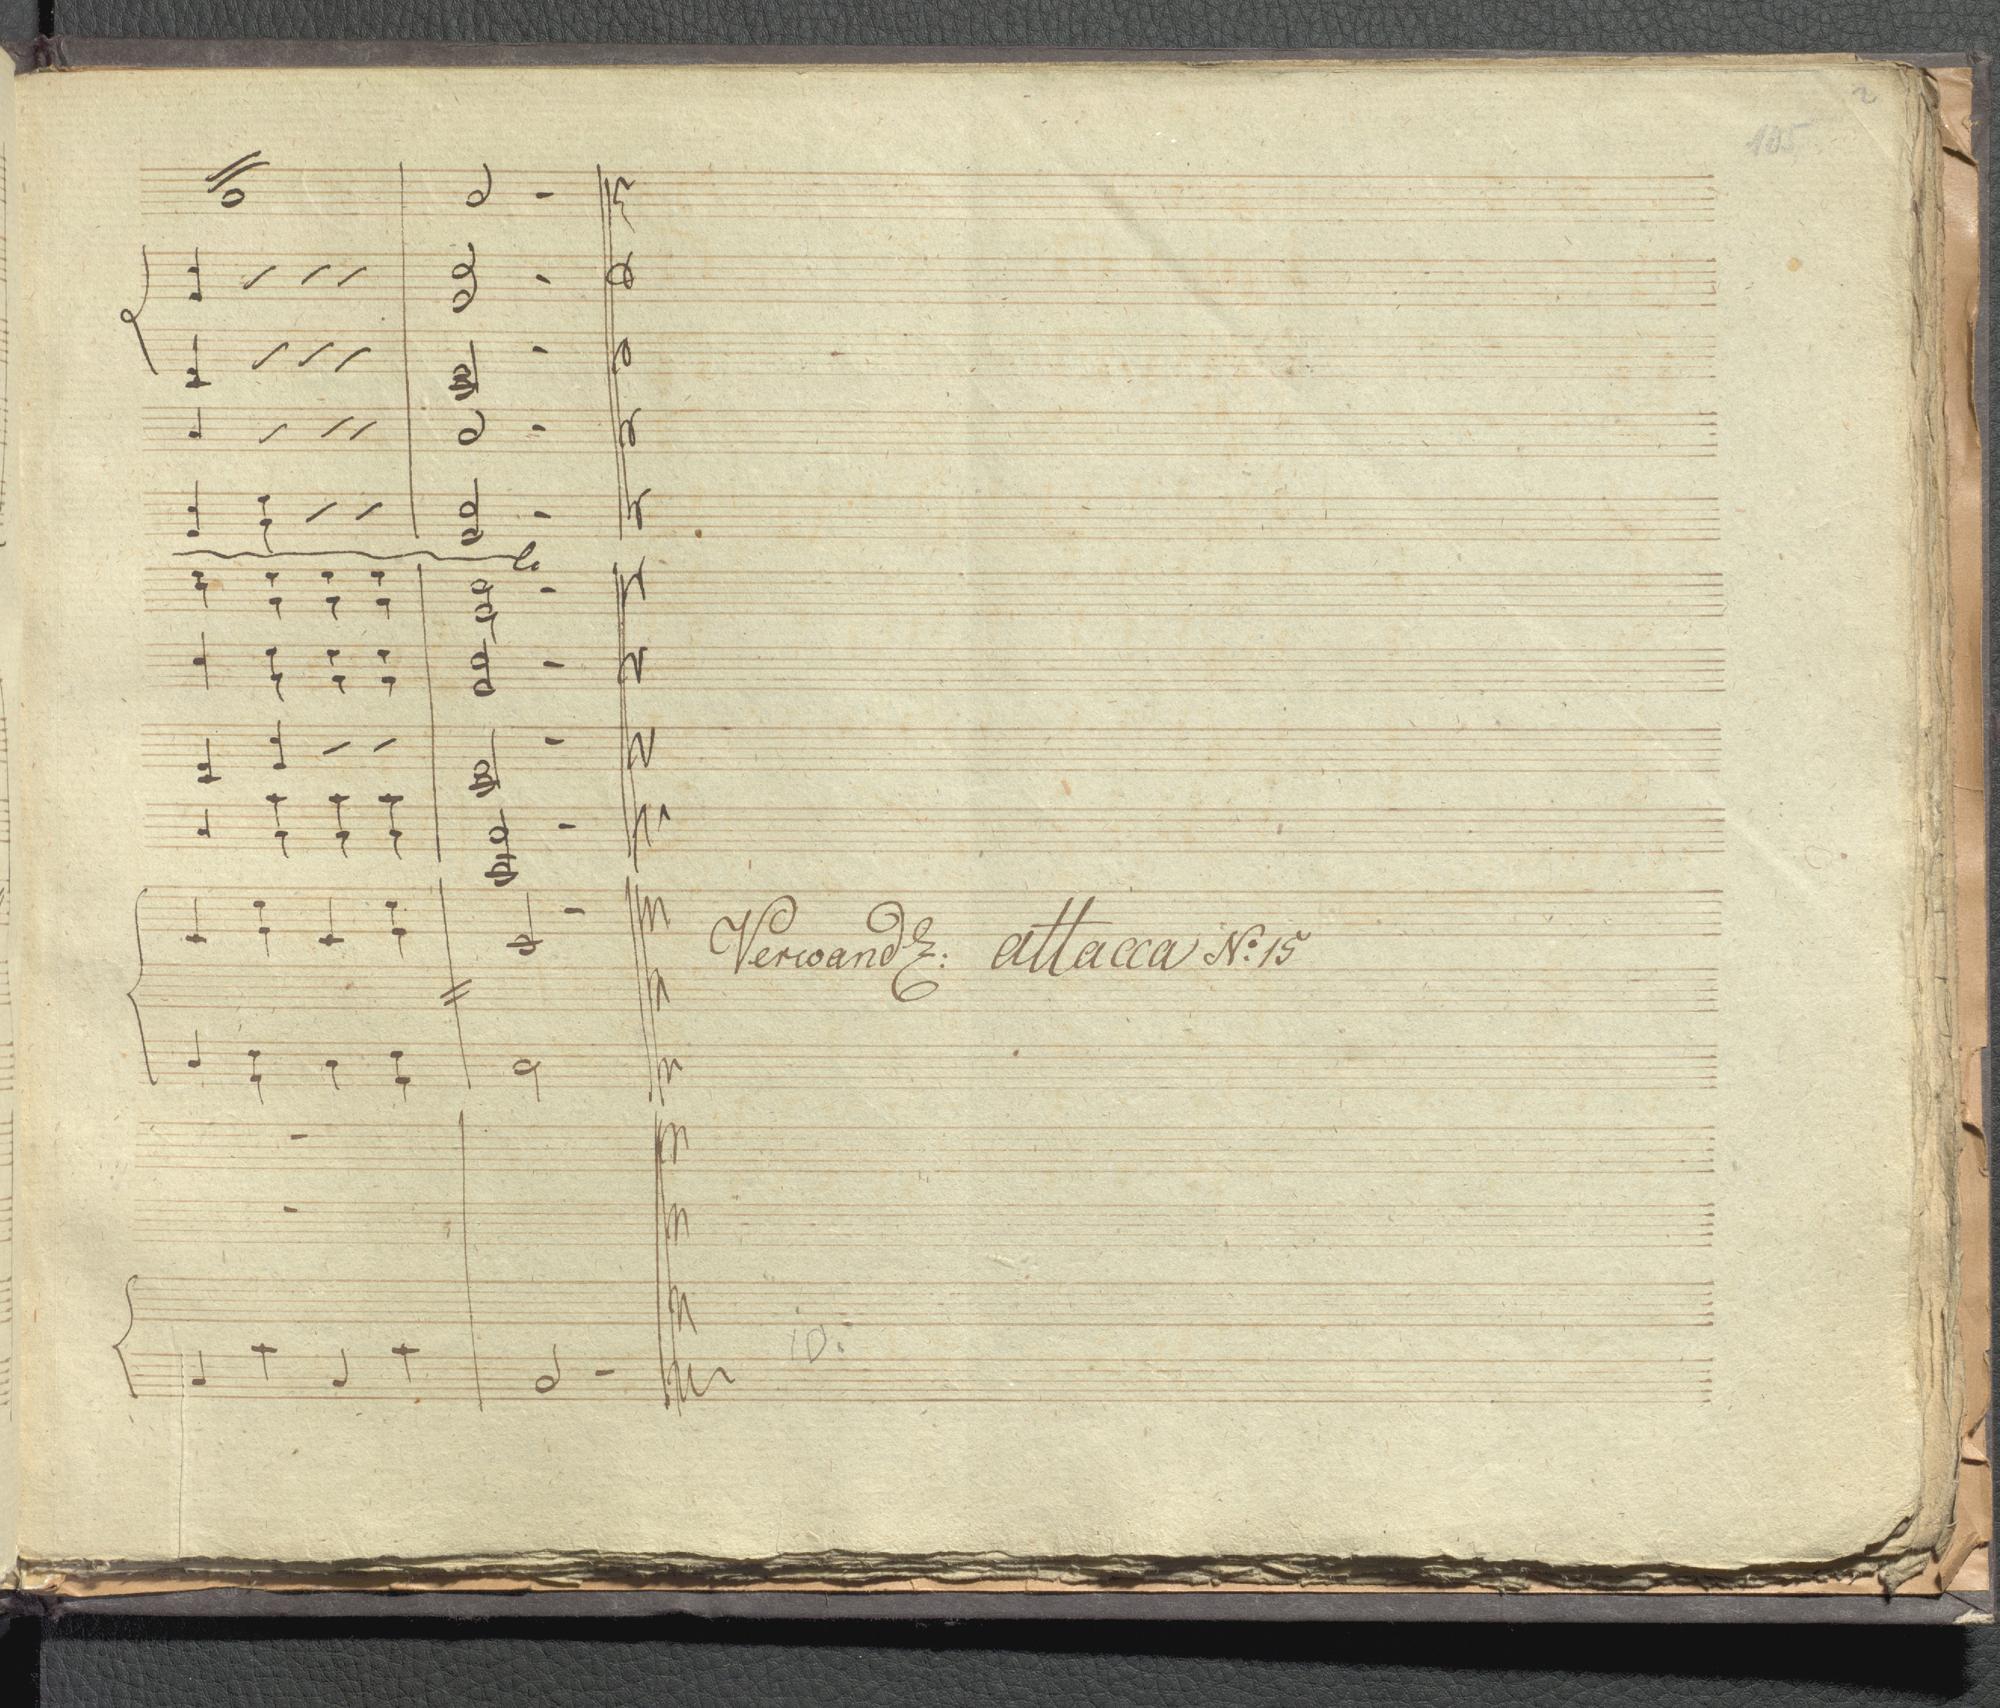 2
105
Verwandlg: attacca No: 15
10.